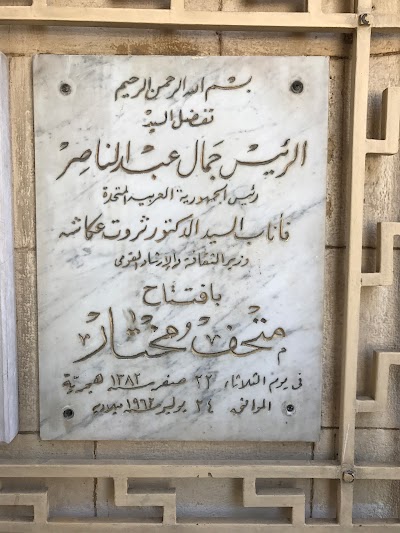 بسم الله الرحمن الرحيم
تفضل السيد
الرئيس جمال عبد الناصر
رئيس الجمهورية العربية المتحدة
فأناب السيد الدكتور ثروت عكاشه
وزير الثقافة والإرشاد القومى
بافتتاح
متحف مختار
فى يوم الثلاثاء ٢٢ صفر سنة ١٣٨٢ هجرية
الموافق ٢٤ يوليو ١٩٦٢ ميلادية